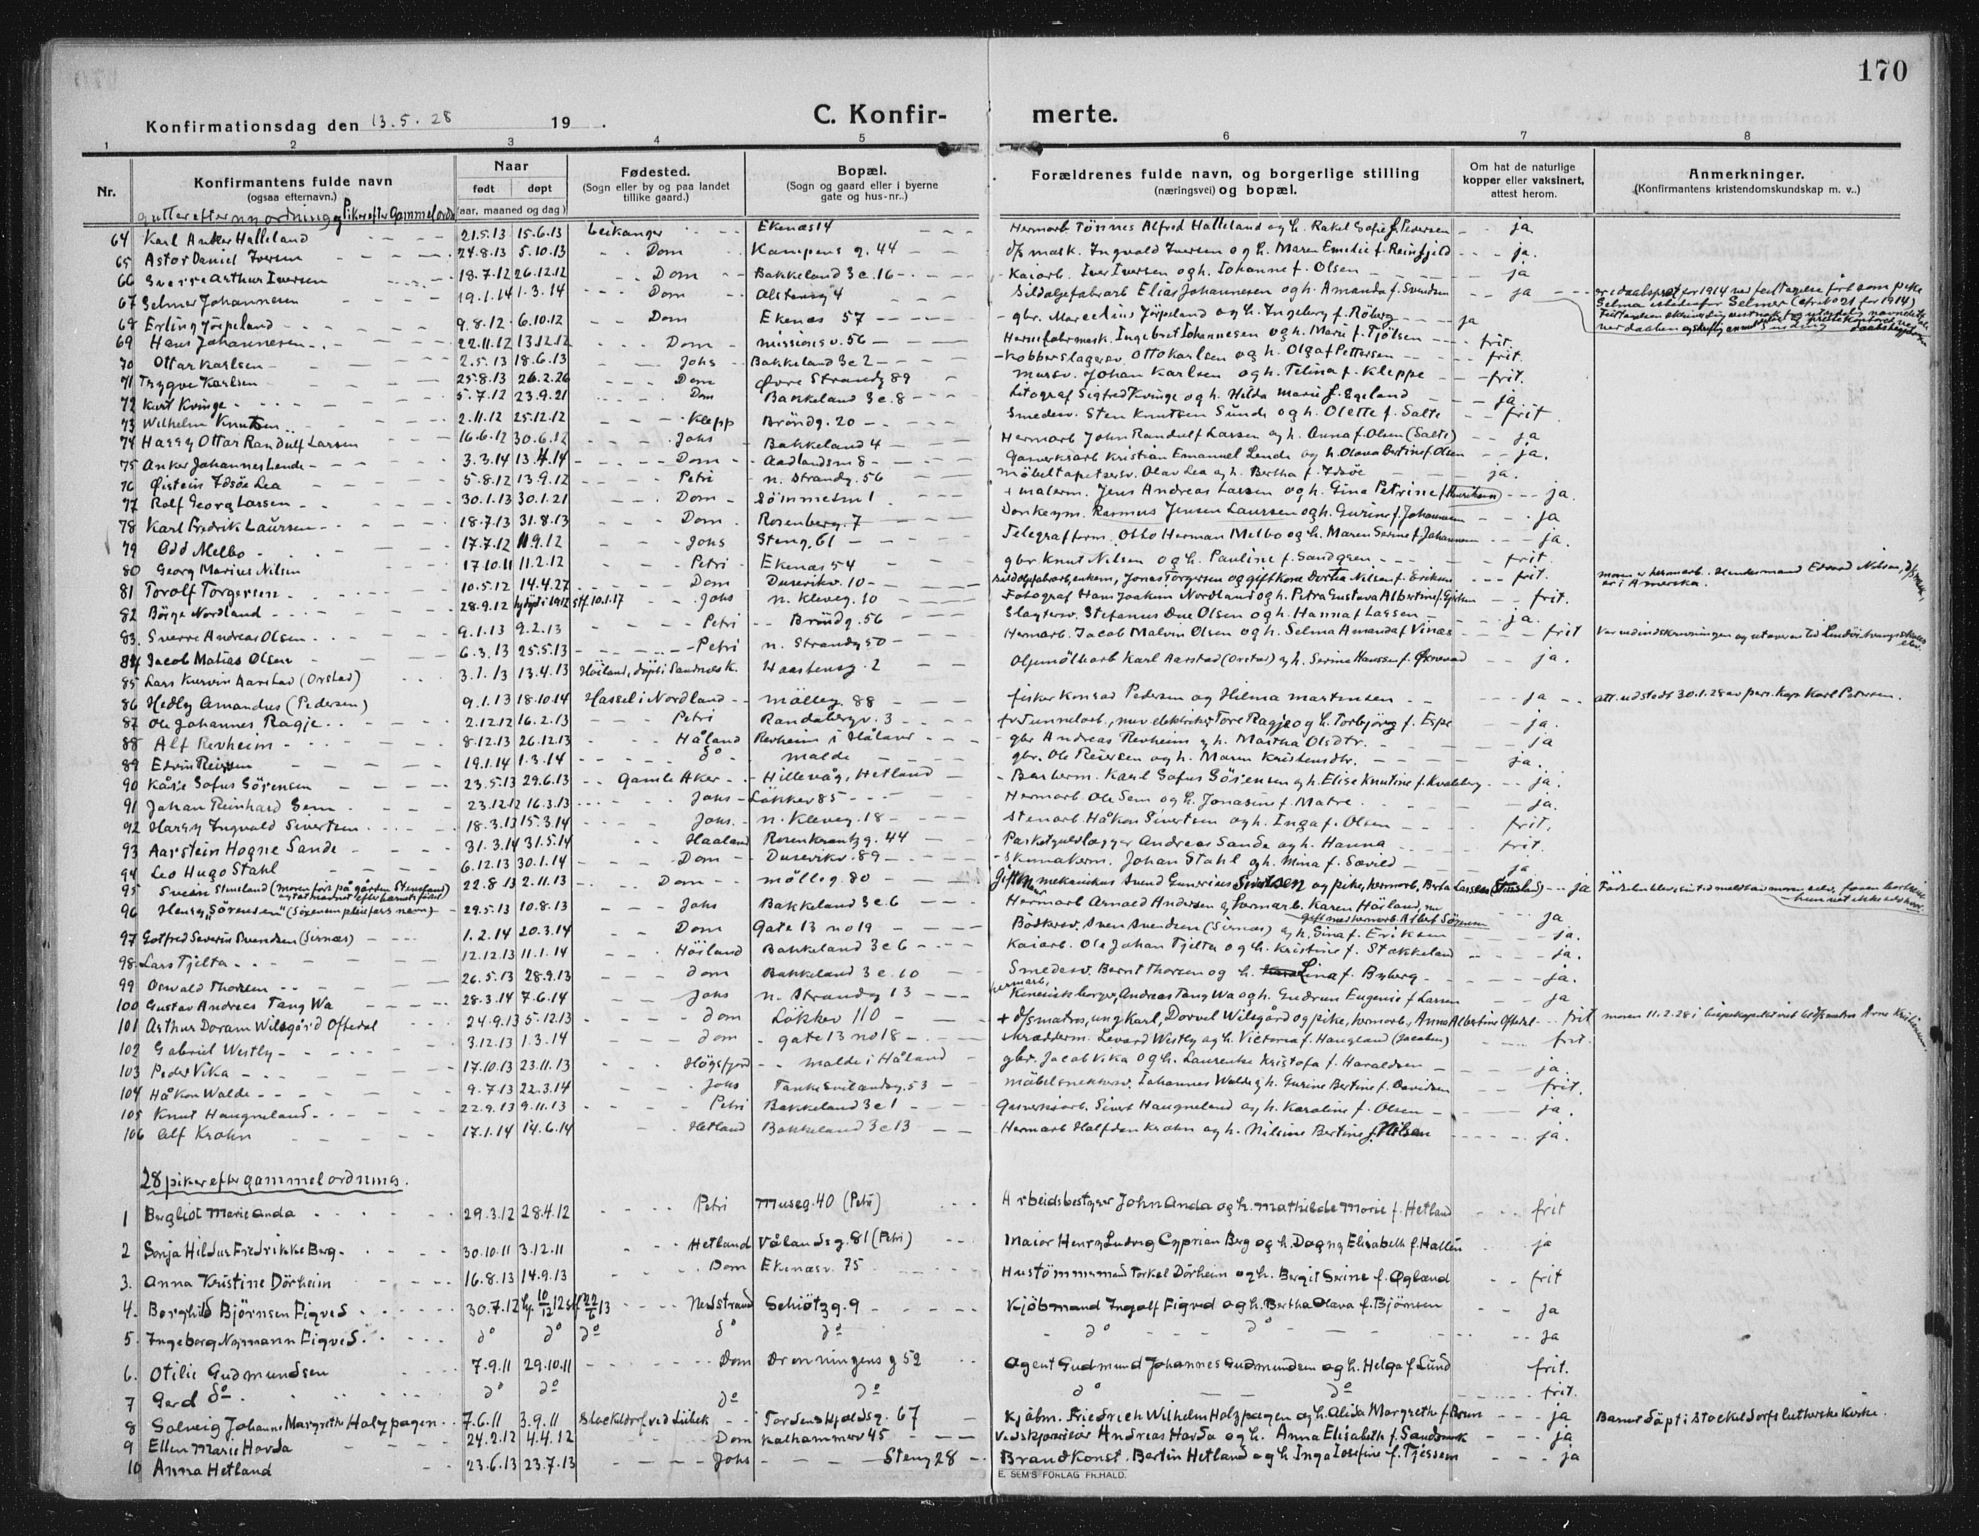 170
Konfirmationsdag den 13.5.28 19 .
C. Konfir- merte.
1 2 3 4 5 6 7 8
Nr. Konfirmantens fulde navn (ogsaa efternavn.) Naar født døpt (aar, maaned og dag) Fødested. (Sogn eller by og paa landet tillike gaard.) Bopæl. (Sogn og gaard eller i byerne gate og hus-nr..) Forældrenes fulde navn, og borgerlige stilling (næringsvei) og bopæl. Om hat de naturlige kopper eller vaksinert, attest herom. Anmerkninger. (Konfirmantens kristendomskundskap m. v..)
gutter efter ny ordning og Piker efter Gammel ordn
64 Karl Anker Halleland 21.5.13 15.6.13 Leikanger Ekenäs 14 Hermarb Tönnes Alfred Halleland og h. Rakel Sofie f. Pedersen ja
65 Astor Daniel Iversen 24.8.13 5.10.13 Dom Kampens g. 44 d/s mask. Ingvald Iversen og h. Maren Emelie f. Reinfjeld ja.
66 Sverre Arthur Iversen 18.7.12 26.12.12 Dom Bakkeland 3e.16 Kaiarb. Iver Iversen og h. Johanne f. Olsen ja
67 Selmer Johannesen 19.1.14 1.3.14 Dom Alstensg 4 Sildoljefabrarb Elias Johannesen og h. Amanda f. Svendsen ja
68 Erling Jörpeland 9.8.12 6.10.12 Dom Ekenäs 57 gbr. Marcelius Jörpeland og h. Ingeborg f. Röberg ja
69 Hans Johannesen 22.11.12 13.12.12 Dom missionsv. 56 Hermefabrmesk. Ingebret Johannesen og h. Marie f. Tjölsen frit.
70 Ottar Karlsen 2.5.13 18.6.13 Johs Bakkeland 3e 2 Kobberslagersv Otto Karlsen og h. Olga f Pettersen frit.
71 Trygve Karlsen 25.8.13 26.2.26 Dom Øvre Strandg 89 mursv. Johan Karlsen og h. Telina f. Kleppe frit.
72 Kurt Kvinge 5.7.12 23.9.21 Dom Bakkeland 3e.8 Litograf Sigfred Kvinge og h. Hilda Marie f. Egeland ja
73 Wilhelm Knutsen 2.11.12 25.12.12 Klepp Bröndg. 20 Smedesv. Sten Knutsen Sunde og h. Olette f. Salte frit
74 Harry Ottar Randulf Larsen 16.6.12 30.6.12 Johs Bakkeland 4 Hermarb John Randulf Larsen og h. Anna f. Olsen (Salte) ja
75 Anker Johannes Lende 3.3.14 13.4.14 Dom Aadlandsm 8 Gasverksarb Kristian Emanuel Lende og h. Olava Bertine f. Olsen ja.
76 Øistein Idsöe Lea 5.8.12 13.9.12 Petri n. Strandg. 56 möbeltapetsersv. Olav Lea og h. Bertha f. Idsöe ja.
77 Rolf Georg Larsen 30.1.13 30.1.21 Dom Sömmesm 1 + malerm. Jens Andreas Larsen og h. Gina Petrine f. ja.
78 Karl Fredrik Laursen 18.7.13 31.8.13 Dom Rosenberg. 7 Rasmus Jensen Laursen og h. Gurine f. Johannesen ja
79 Odd Melbo 17.7.12 11.9.12 Johs Steng. 61 Telegrafform. Otto Herman Melbo og h. Maren Serine f. Johannesen ja.
80 Georg Marius Nilsen 17.10.11 11.2.12 Petri Ekenäs 54 gbr Knut Nilsen og h. Pauline f. Sandgren frit.
81 Torolf Torgersen 10.5.12 14.4.27 Dom Dusevikv. 10 Sildoljefabrarb, enkem, Jonas Torgersen og gift kone Dorthea Nilsen f. Eriksen frit.
82 Börge Nordland 28.9.12 Johs n. Kleveg. 10 Fotograf Hans Joakim Nordland og h. Petra Gustava Albertine f. frit.
83. Sverre Andreas Olsen 9.1.13 9.2.13 Petri Bröndg. 56 Slagtersv. Stefanus Due Olsen og h. Hanna f Larsen ja.
84 Jacob Matias Olsen 6.3.13 25.5.13 Petri n. Strandg 50 Hermarb. Jacob Malvin Olsen og h. Selma Amanda f Vinäs frit
85 Lars Kurvin Aarstad (Orstad) 3.1.13 13.4.13 Höiland, döpt i Sandnes K. Haastensg. 2 Oljemöllearb Karl Aarstad (Orstad) og h. Serine Hanssen f. ja.
86 Hedly Amandus (Pedersen) 9.1.13 18.10.14 Hassel i Nordland mölleg. 88 fisker Konrad Pedersen og Hilma Martinsen ja att. udstedt 30.1.28 av pers. kap Karl Petersen.
87 Ole Johannes Ragje 2.12.12 16.2.13 Petri Randabergv. 3 fv Tunnelarb., nuv elektriker Tore Ragje og h. Torbjörg f. Espe ja.
88 Alf Revheim 8.12.13 26.12.13 Håland Revheim i Håland gbr Andreas Revheim og h. Martha Olsdtr. ja
89 Edvin Reiersen 19.1.14 1.3.14 do malde gbr. Ole Reiersen og h. Maren Kristensdtr. ja.
90 Kåre Sofus Sörensen 23.5.13 29.6.13 Gamle Aker Hillevåg, Hetland Barberm. Karl Sofus Sörensen og h. Elise Knutine f. Kvalberg ja.
91 Johan Reinhard Sem 23.12.12 16.3.13 Johs Lökkev 85 Hermarb Ole Sem og h. Jonasine f. Matre ja.
92 Harry Ingvald Sivertsen 18.3.13 15.3.14 Johs. n. Kleveg. 18 Stenarb Håkon Sivertsen og h. Inga f. Olsen frit.
93 Aarstein Hogne Sande 31.3.14 31.5.14 Haaland Rosenkrantzg. 44 Parketgulvlegger Andreas Sande og h. Hanna frit.
94 Leo Hugo Stahl 6.12.13 30.1.14 Dom Dusevikv. 89 Skinnakerm. Johan Stahl og h. Mina f. Sævild ja
95 Svein Steneland (moren født på gården Steneland) 22.8.13 2.11.13 Dom mölleg. 80 Gift mekanikus Svend Gunerius Sivertsen og pike, hermarb, Berta Larsen (Steneland) ja
96 Henry „Sörensen" (Sörensen pleiefars navn) 29.5.13 10.8.13 Johs Bakkeland 3e.6 Hermarb Arnold Andersen og hermarb. Karen Höiland, nu gift med hermarb. Albert Sörensen ja
97 Gotfred Severin Svendsen (Sirnæs) 1.2.14 20.3.14 Dom Gate 13 no 19 Bödkersv. Sven Svendsen (Sirnæs) og h. Sina f. Eriksen ja.
98 Lars Tjelta 12.12.13 11.1.14 Höiland Bakkeland 3e6 Kaiarb. Ole Johan Tjelta og h. Kristine f. Stokkeland ja.
99 Osvald Thorsen 26.5.13 28.9.13 Dom Bakkeland 3e.10 Smedesv. Bernt Thorsen og h. Lina f. Byberg ja.
100 Gustav Andreas Tang Wa 28.3.14 7.6.14 Johs n. Strandg 13 hermarb, Kinesisk borger, Andreas Tang Wa og h. Gudrun Eugenie f Larsen ja
101 Arthur Doram Wilsgård Oftedal 24.9.13 5.12.13 Dom Lökkev 110 + d/s matros, ungkarl, Dorvel Wilsgård og pike, hermarb, Anna Albertine Oftedal frit
102 Gabriel Westly 3.12.13 1.3.14 Dom gate 13 no 18 Skrædderm. Levard Westly og h. Victoria f. Haugland (Jacobsen) frit.
103 Peder Vika 17.10.13 23.11.13 Högsfjord malde i Håland gbr. Jacob Vika og h. Laurentse Kristofa f. Haraldsen ja.
104 Håkon Walde 9.7.13 22.3.14 Johs Tanke Svilandsg. 53 möbelsnekkersv. Johannes Walde og h. Gurine Bertine f. Davidsen frit.
105 Knut Haugneland 22.9.13 9.11.13 Petri Bakkeland 3e1 Gasverksarb. Sivert Haugneland og h. Karoline f. Olsen ja.
106 Alf Krohn 17.1.14 14.6.14 Hetland Bakkeland 3e13 Hermarb Halfdan Krohn og h. Nilsine Bertine f. Nilsen ja.
28 piker efter gammel ordning.
1 Bergliot Marie Anda 29.3.12 28.4.12 Petri Museg. 40 (Petri) Arbeidsbestyrer John Anda og h. Mathilde Marie f. Hetland frit
2 Sonja Hildur Fredrikke Berg 30.10.11 3.12.11 Hetland Vålandsg. 81 (Petri) Maior Henry Ludvig Cyprian Berg og h. Dagny Elisabeth f. Hallén ja
3. Anna Kristine Dörheim 16.8.13 14.9.13 Dom Ekenäsv. 75 Hustömmermand Torkel Dörheim og h. Bergit Serine f. Øglænd frit
4. Borghild Björnsen Figved 30.7.12 Nedstrand Schiötzg. 9 Kjöbmand Ingolf Figved og h. Bertha Olava f. Björnsen ja
5. Ingeborg Normann Figved do do do do do do do ja
6. Otilie Gudmundsen 7.9.11 29.10.11 Dom Dronningensg 52 Agent Gudmund Johannes Gudmundsen og h. Helga f Lund frit.
7 Gerd do do do do do do do frit.
8 Solveig Johanne Margrethe Holzpagen 7.6.11 3.9.11 Stockeldorf ved Lübek Tordenskjoldsg. 67 Kjöbm. Friedrich Wilhelm Holzpagen og h. Alida Margreth f Brun ja Barnet döpt i Stockeldorfs lutherske Kirke.
9 Ellen Marie Havda 24.2.12 4.4.12 Dom Kalhammerv 45 Andreas Havda og h. Anna Elisabeth f. Sandsmark ja
10 Anna Hetland 23.6.13 23.7.13 Johs Steng 28 Brandkonst. Bertin Hetland og h. Inga Josefine f. Tjessem ja
E. SEM'S FORLAG FR.HALD.